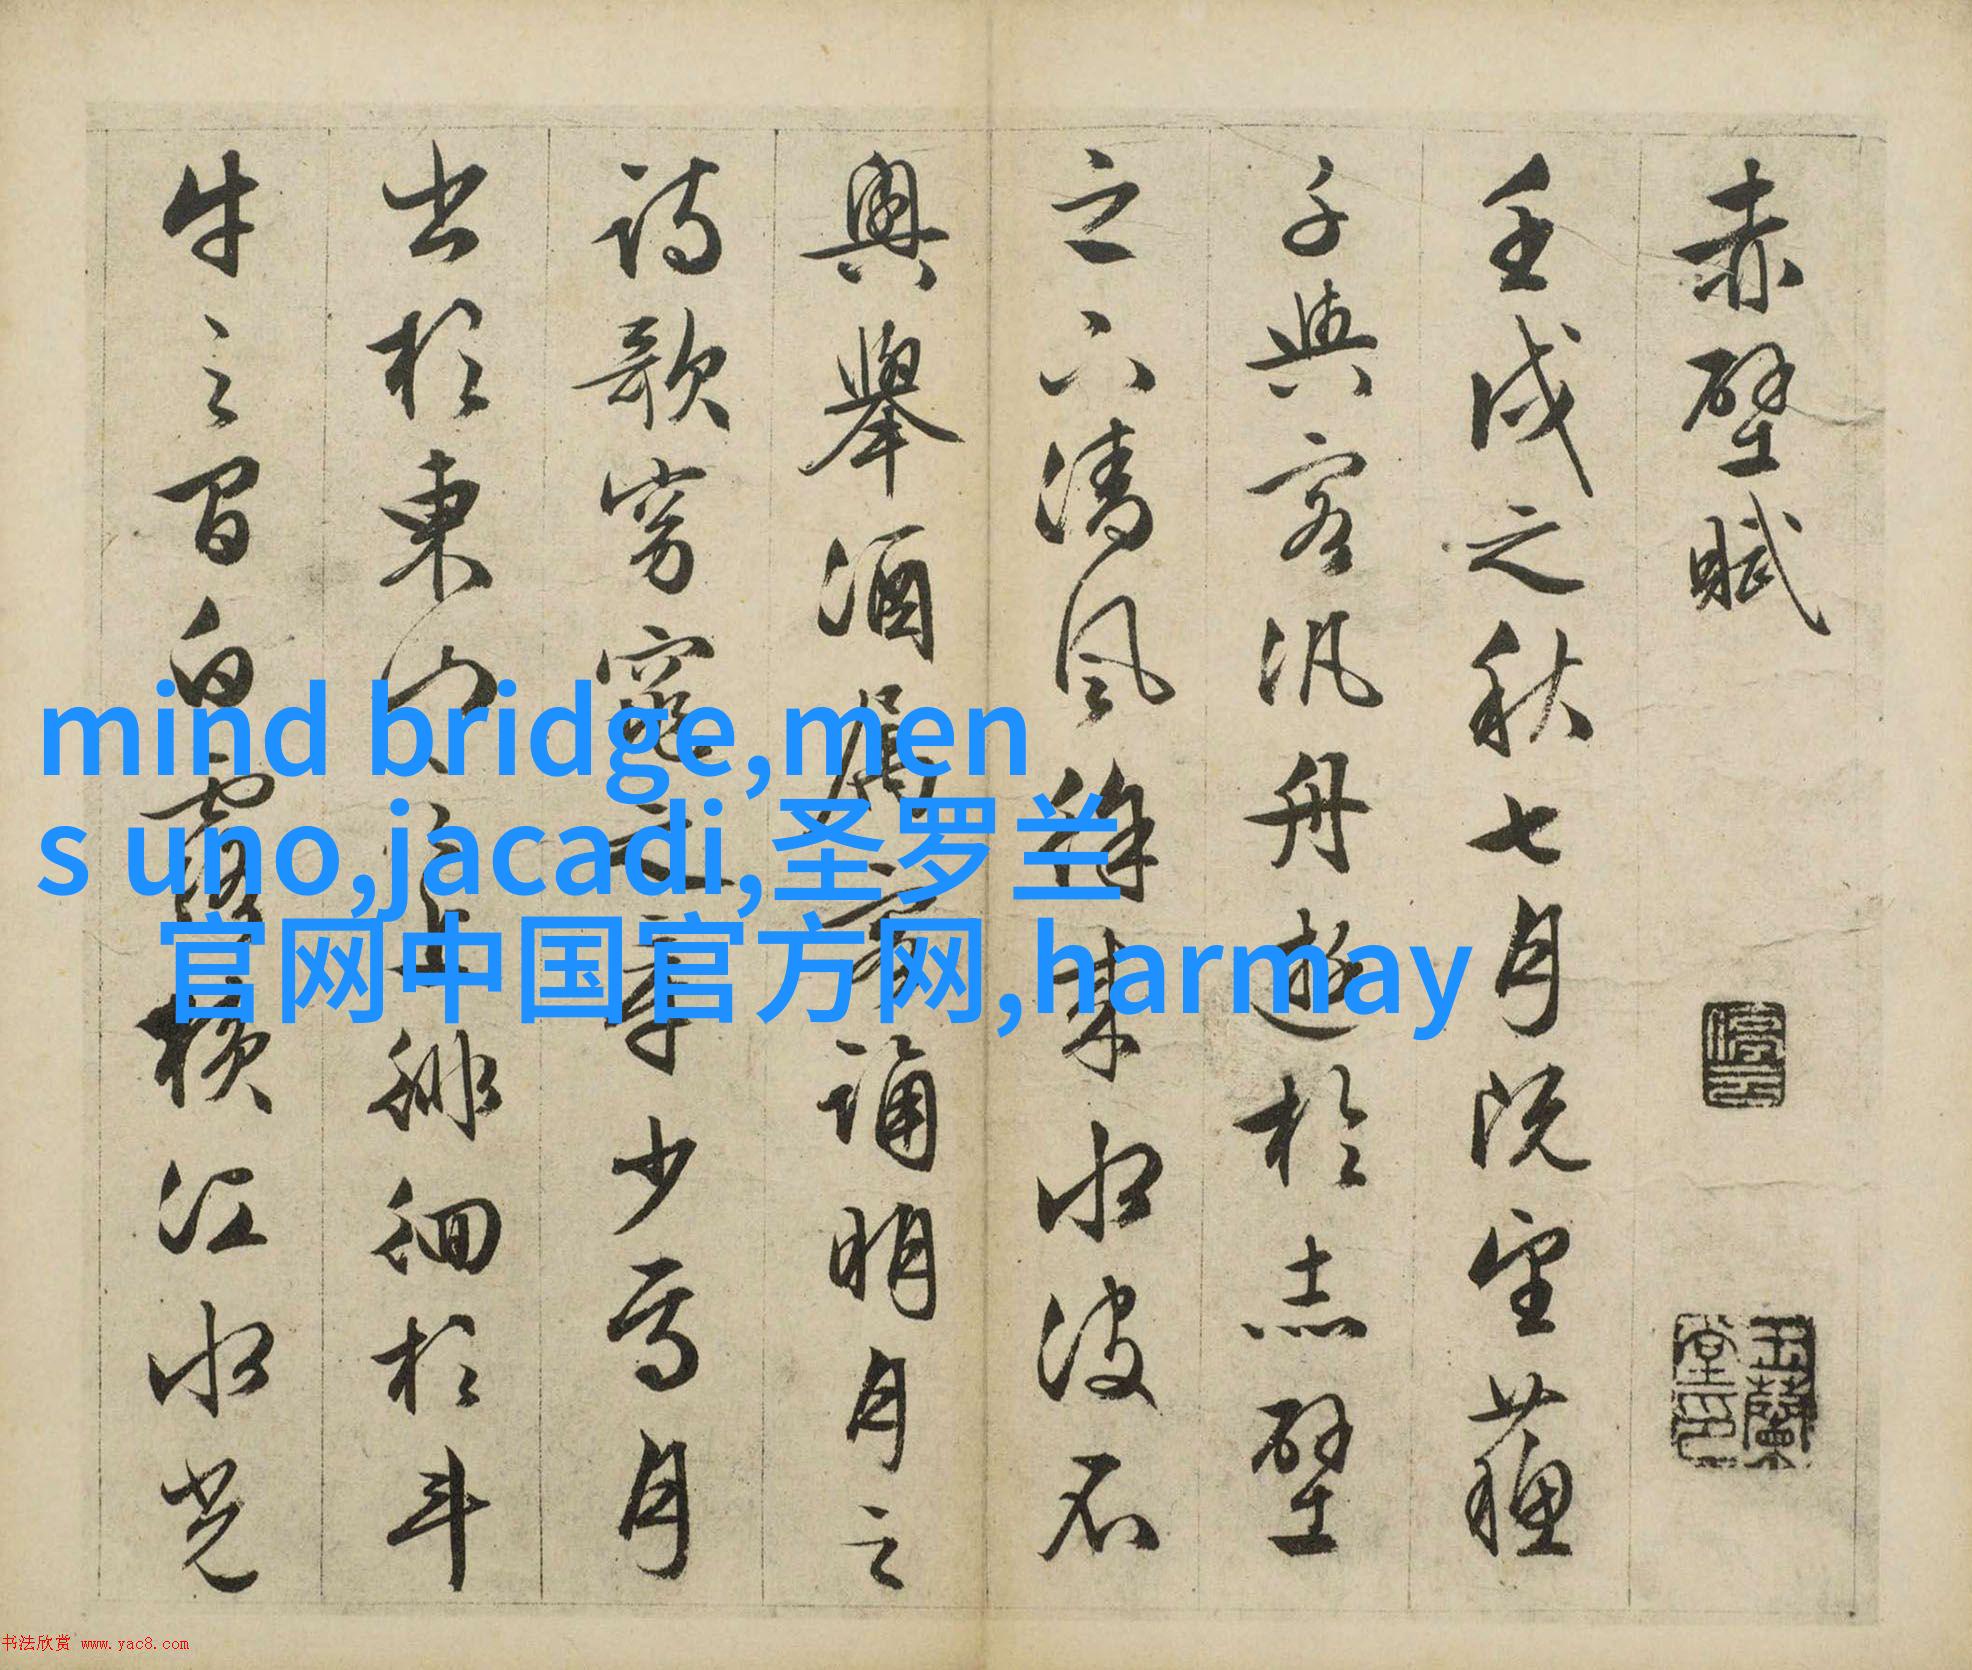 赤壁賦
停雲
玉蘭堂印
壬戌之秋七月既望蘇
子與客汎舟遊於赤壁
之下清風徐來水波不
興舉酒屬客誦明月之
詩歌窈窕之章少焉月
出於東山之上徘徊於斗
牛之間白露橫江水光
mind bridge,men
s uno,jacadi,圣罗兰
官网中国官方网,harmay
书法欣赏 www.yac8.com